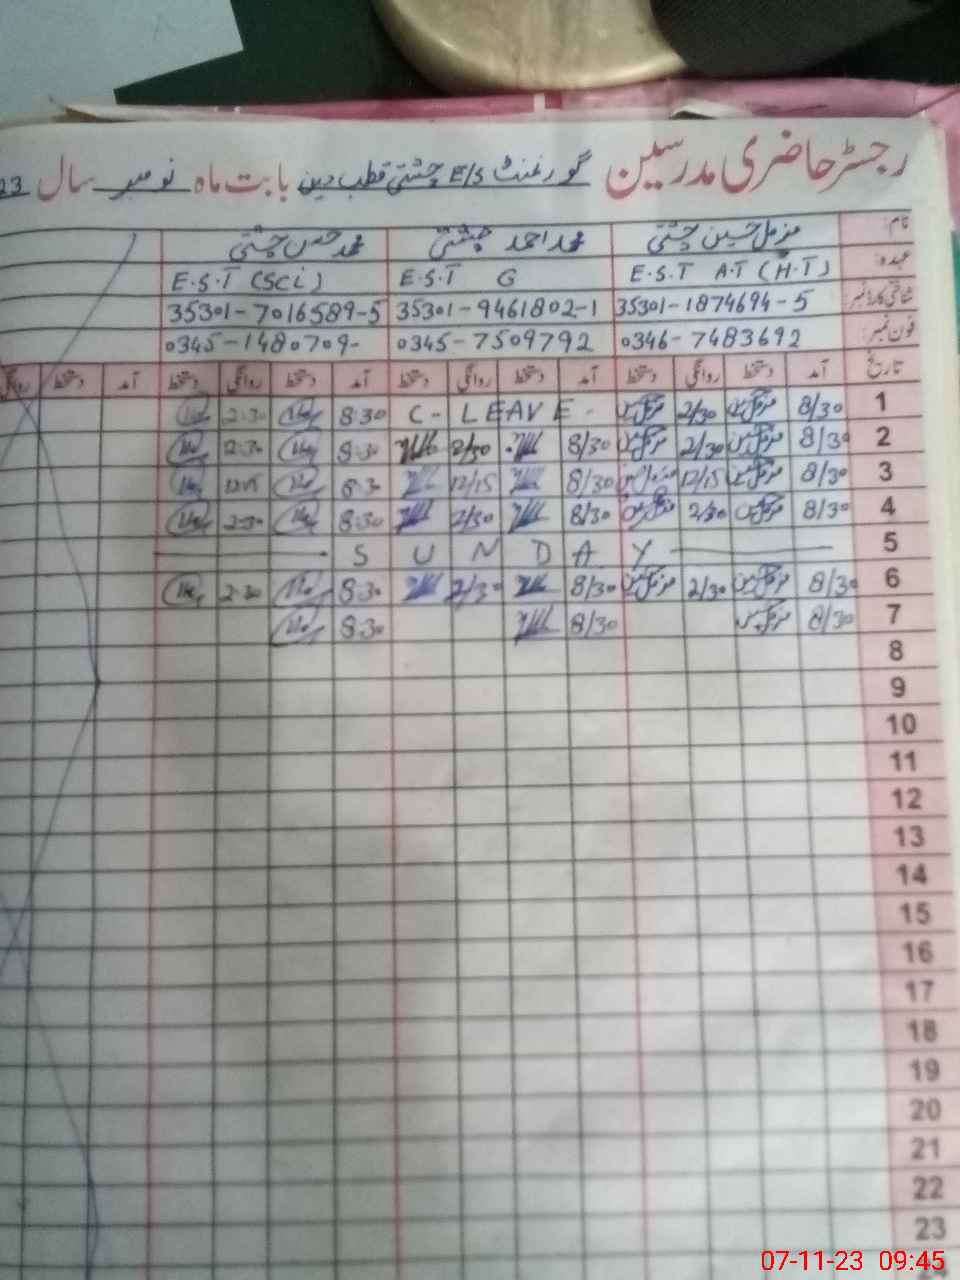 رجسٹر حاضری مدرسین گورنمنٹ E/S چشتی قطب دین بابت ماہ نومبر سال 23
نام: مزمل حسین چشتی محمد احمد چشتی محمد حسن چشتی
عہدہ: E.S.T A.T (H.T) E.S.T G E.S.T (Sci)
شناختی کارڈ نمبر 35301-1874694-5 35301-9461802-1 35301-7016589-5
فون نمبر: 0346-7483692 0345-7509792 0345-1480709-
تاریخ آمد دستخط روانگی دستخط آمد دستخط روانگی دستخط آمد دستخط روانگی دستخط آمد دستخط روانگی
1 8/30 2/30 C-LEAVE- 8:30 2:30
2 8/30 2/30 8/30 2/30 8:30 2:30
3 8/30 12/15 8/30 12/15 8:30 12:15
4 8/30 2/30 8/30 2/30 8:30 2:30
5 SUNDAY
6 8/30 2/30 8/30 2/30 8:30 2:30
7 8/30 8/30 8:30
8
9
10
11
12
13
14
15
16
17
18
19
20
21
22
23
07-11-23 09:45